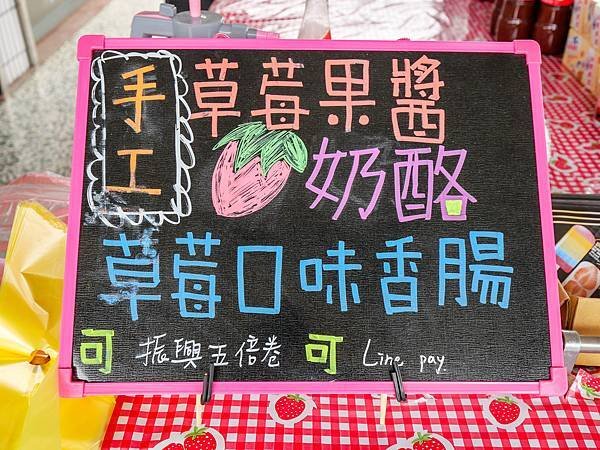 手工
草莓果醬
奶酪
草莓口味香腸
可 振興五倍卷 可 Line pay